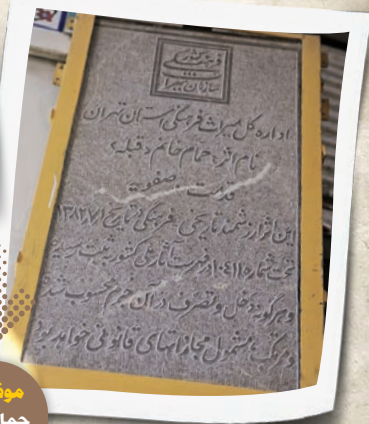 سازمان میراث فرهنگی کشور
اداره کل میراث فرهنگی استان تهران
نام اثر: حمام خانم «قبله»
قدمت: صفویه
این اثر ارزشمند تاریخی - فرهنگی در تاریخ ۱۳۸۲/۷/۱
تحت شماره ۱۰۴۱۱ در فهرست آثار ملی کشور به ثبت رسیده
و هرگونه دخل و تصرف در آن جرم محسوب شده
و مرتکب مشمول مجازاتهای قانونی خواهد بود